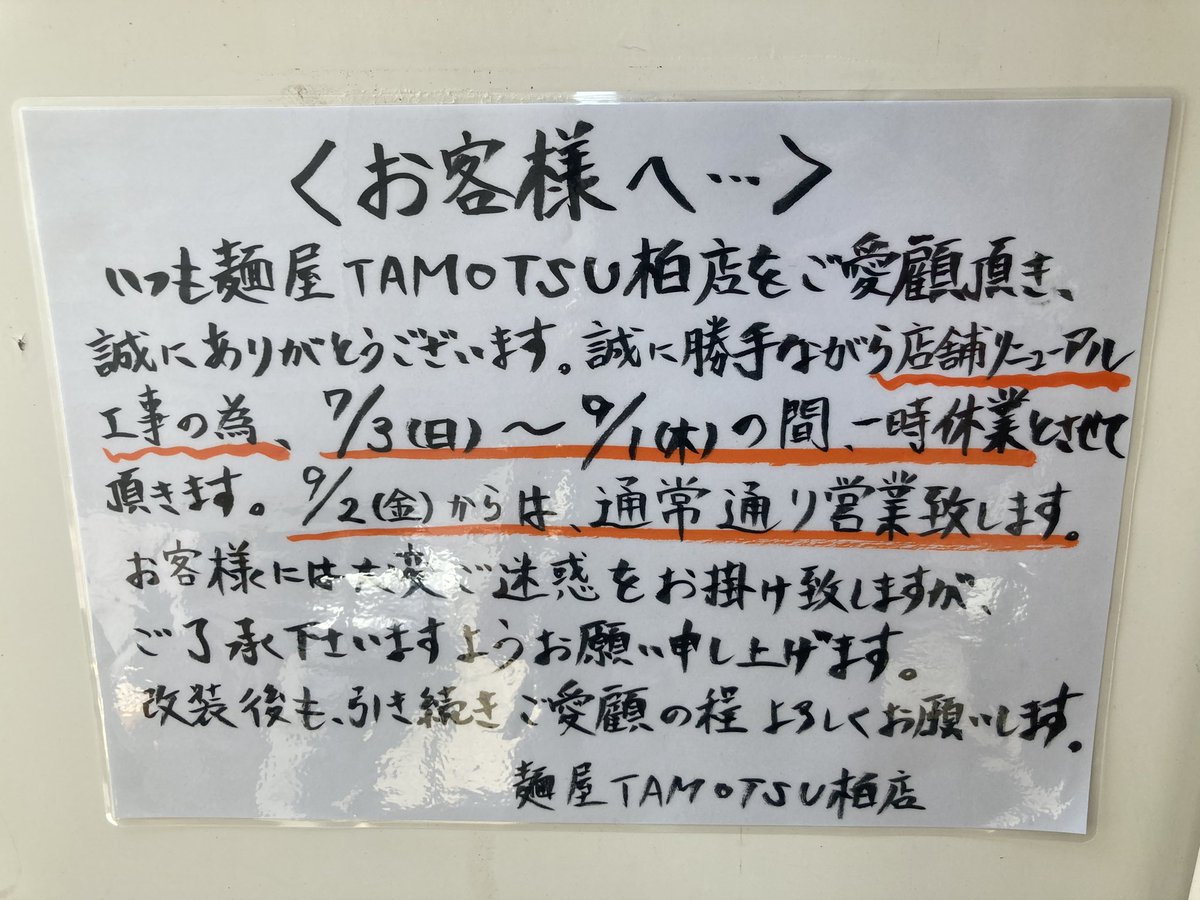 〈お客様へ…〉
いつも麺屋TAMOTSU柏店をご愛顧頂き、
誠にありがとうございます。誠に勝手ながら店舗リニューアル
工事の為、7/3(日)〜9/1(木)の間、一時休業とさせて
頂きます。9/2(金)からは、通常通り営業致します。
お客様には大変ご迷惑をお掛け致しますが、
ご了承下さいますようお願い申し上げます。
改装後も、引き続きご愛顧の程よろしくお願いします。
麺屋TAMOTSU柏店